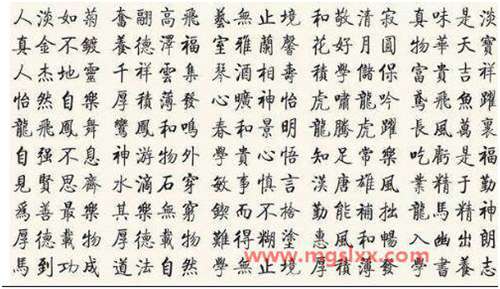 人淡如菊 奮翮高飛 藝無止境 和敬清寂 真味是淡
真金不鍍 養德澤福 室雅蘭馨 花好月圓 物華天寶
人杰地靈 千祥雲集 琴酒 壽 積學儲保 富貴吉祥
怡然自樂 厚積薄發 曠神怡 虎嘯龍吟 鳶飛魚躍
龍飛鳳舞 鸞鳳和鳴 春和景明 龍騰虎躍 長風萬裏
自強不息 神游物外 學貴心悟 知足常樂 吃虧是福
見賢思齊 水滴石穿 敏事慎言 漢唐雄風 業精于勤
爲善最樂 其樂無窮 鍥而不捨 勤能補拙 龍馬精神
厚德載物 厚德載物 難得糊塗 惠風和暢 入幽出朗
馬到功成 道法自然 學無止境 厚積薄發 學書 志
www.mgslxx.com